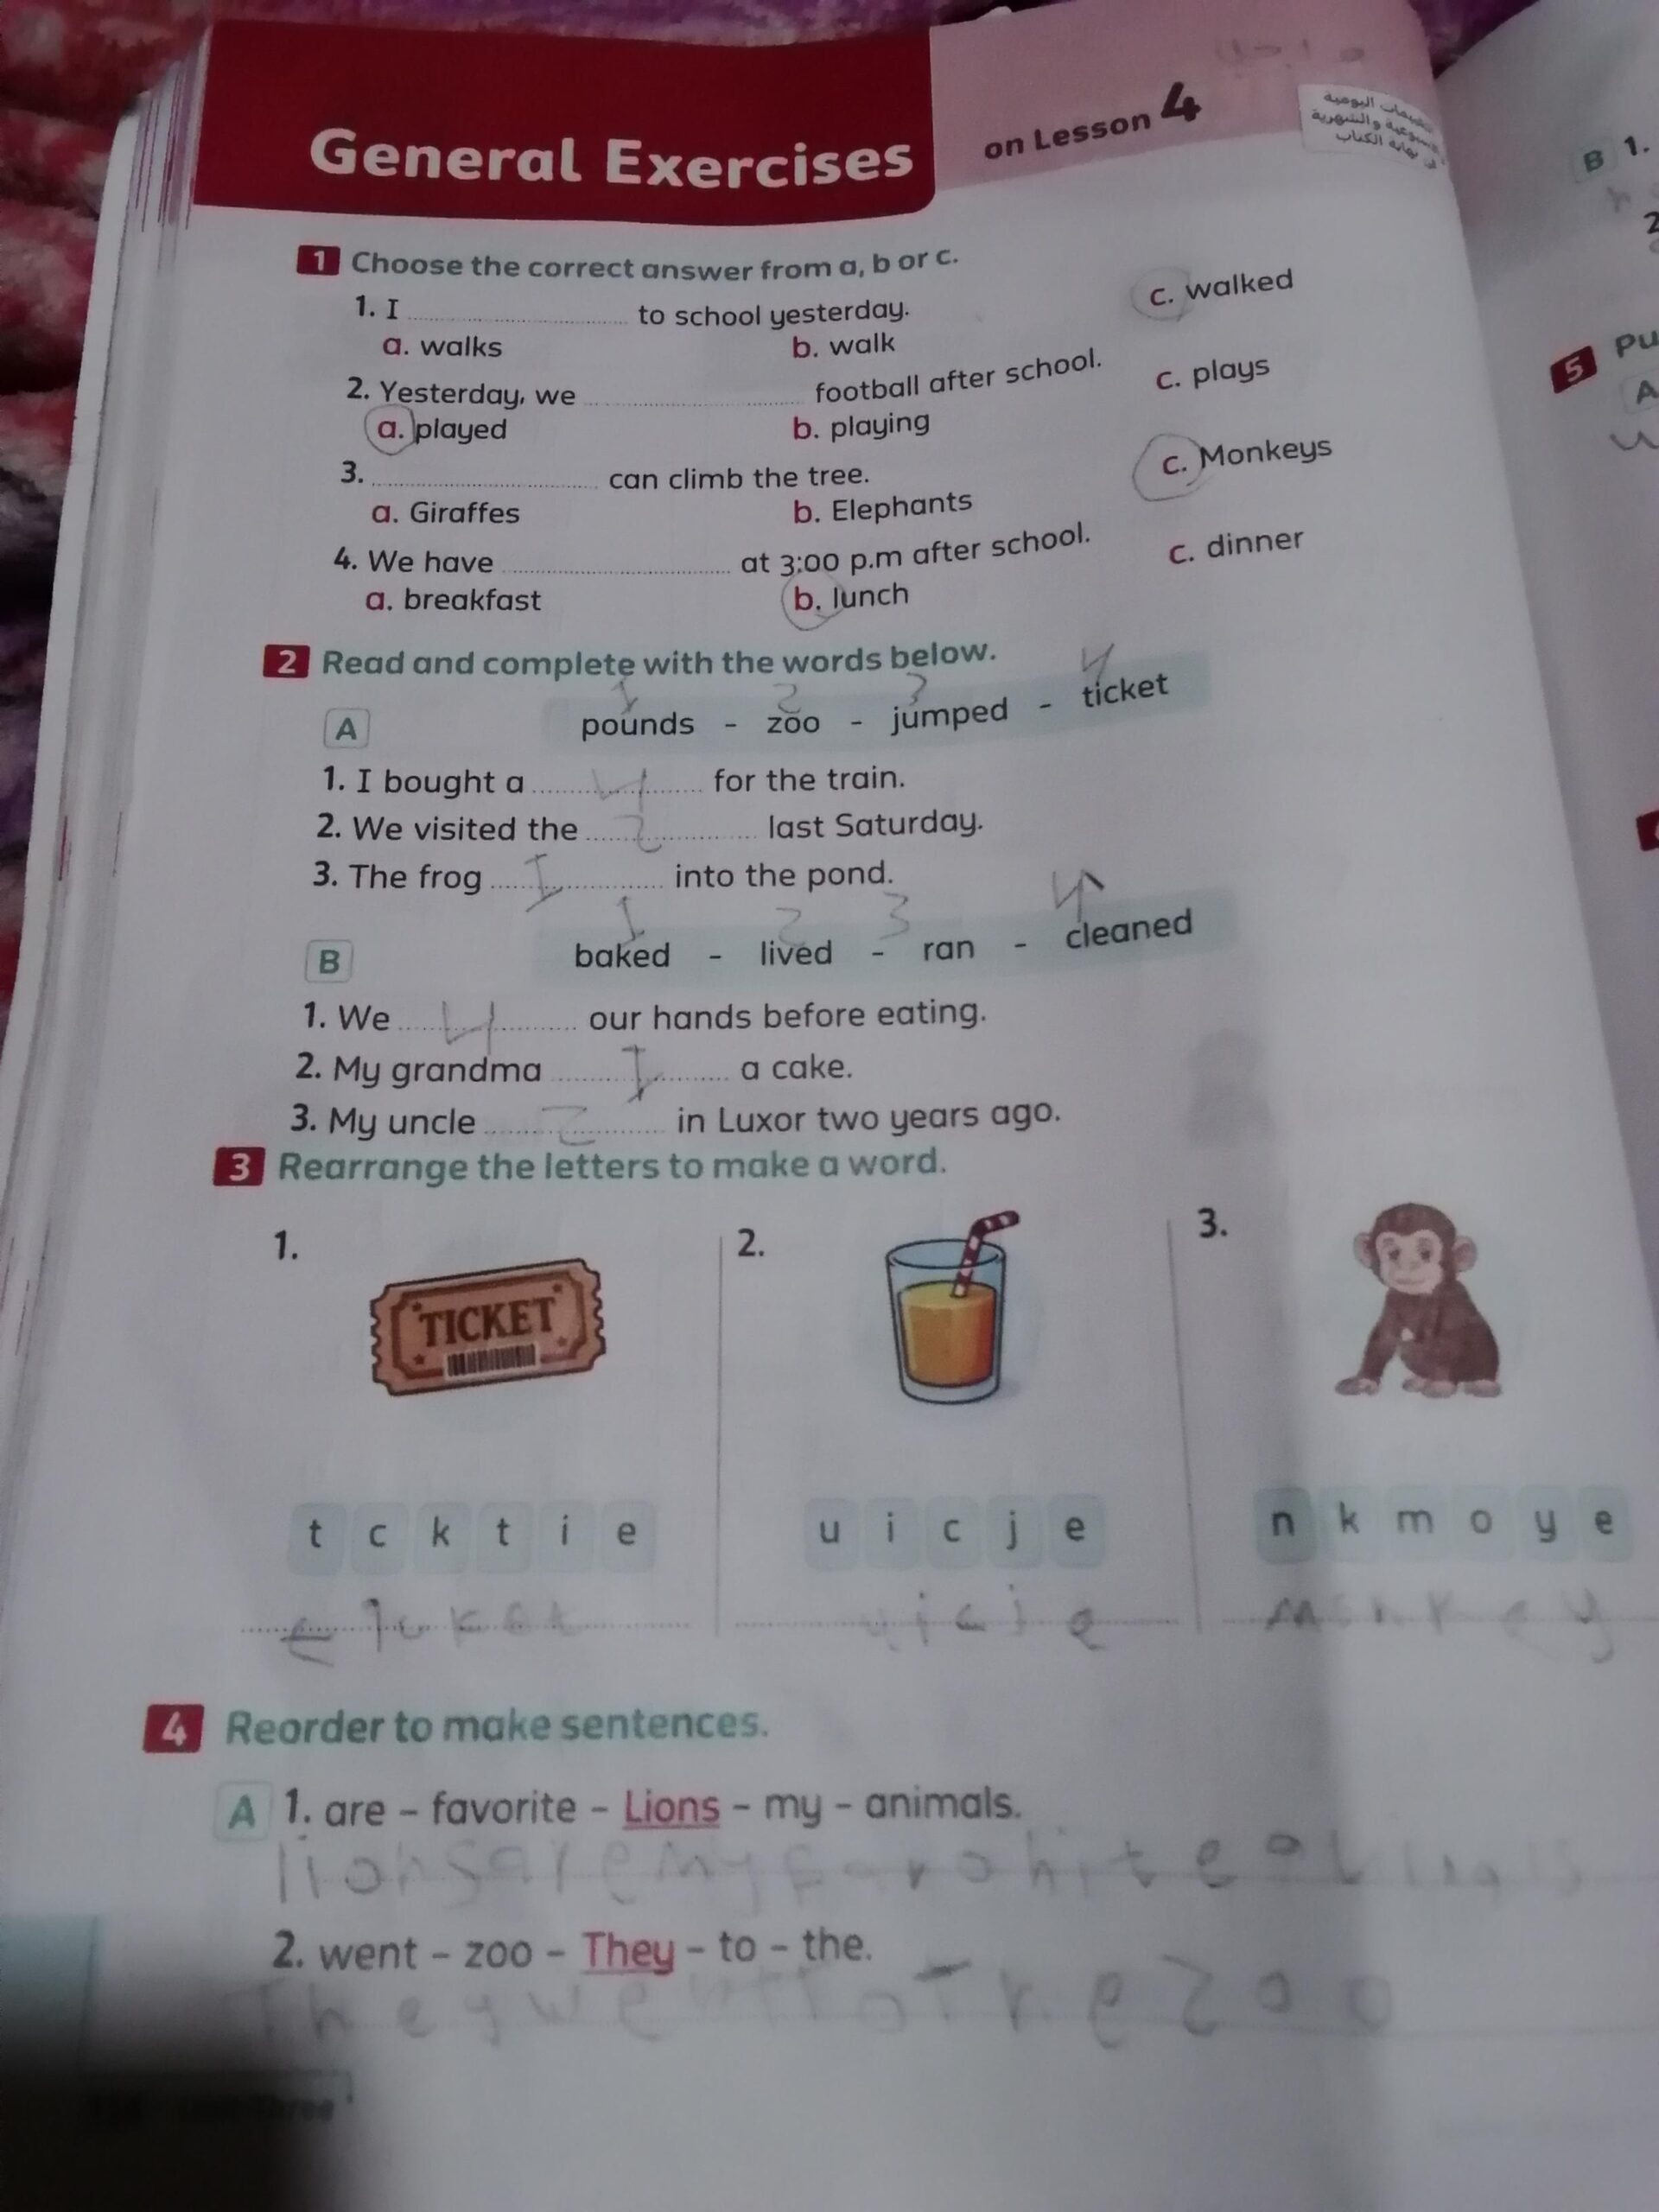 General Exercises on Lesson 4
1 Choose the correct answer from a, b or c.
1. I .................... to school yesterday.
a. walks b. walk c. walked
2. Yesterday, we .................... football after school.
a. played b. playing c. plays
3. .................... can climb the tree.
a. Giraffes b. Elephants c. Monkeys
4. We have .................... at 3:00 p.m after school.
a. breakfast b. lunch c. dinner
2 Read and complete with the words below.
1 2 3 4
A pounds - zoo - jumped - ticket
1. I bought a 4 for the train.
2. We visited the 2 last Saturday.
3. The frog 1 into the pond.
1 2 3 4
B baked - lived - ran - cleaned
1. We 4 our hands before eating.
2. My grandma 1 a cake.
3. My uncle 2 in Luxor two years ago.
3 Rearrange the letters to make a word.
1. 2. 3.
TICKET
t c k t i e u i c j e n k m o y e
uicje monkey
4 Reorder to make sentences.
A 1. are – favorite – Lions – my – animals.
lions are my
2. went – zoo – They – to – the.
They went To The zoo
Three
B 1.
2
5 Pu
A